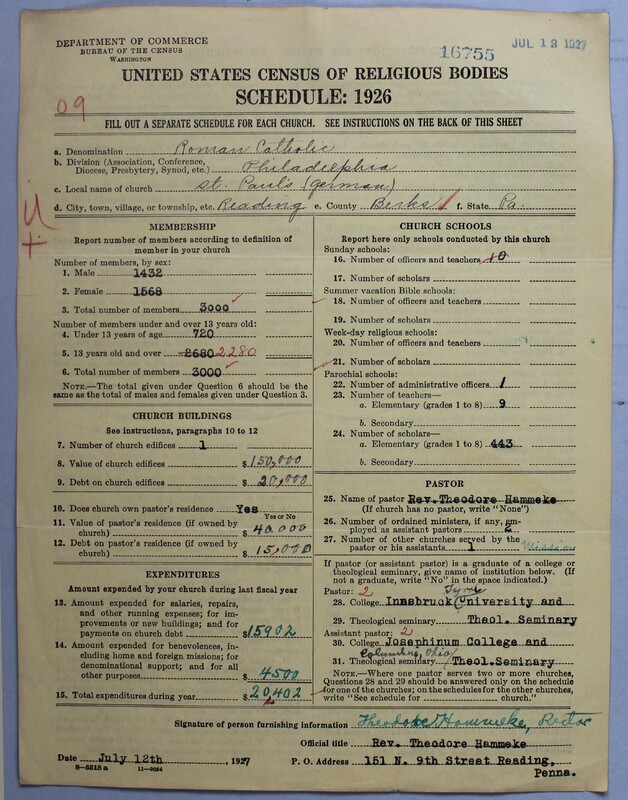 DEPARTMENT OF COMMERCE
BUREAU OF THE CENSUS
WASHINGTON
16755
JUL 13 1927
UNITED STATES CENSUS OF RELIGIOUS BODIES
SCHEDULE: 1926
09
FILL OUT A SEPARATE SCHEDULE FOR EACH CHURCH. SEE INSTRUCTIONS ON THE BACK OF THIS SHEET
a. Denomination Roman Catholic
b. Division (Association, Conference, Diocese, Presbytery, Synod, etc.) Philadelphia
c. Local name of church St. Paul's (german)
d. City, town, village, or township, etc. Reading e. County Berks f. State Pa.
MEMBERSHIP
Report number of members according to definition of
member in your church
Number of members, by sex:
1. Male 1432
2. Female 1568
3. Total number of members 3000
Number of members under and over 13 years old:
4. Under 13 years of age 720
5. 13 years old and over 2680 2280
6. Total number of members 3000
NOTE.—The total given under Question 6 should be
same as the total of males and females given under Question 3.
CHURCH BUILDINGS
See instructions, paragraphs 10 to 12
7. Number of church edifices 1
8. Value of church edifices $150,000
9. Debt on church edifices $20,000
10. Does church own pastor's residence? Yes
Yes or No
11. Value of pastor's residence (if owned by
church) $40.000
12. Debt on pastor's residence (if owned by
church) $15,000
EXPENDITURES
Amount expended by your church during last fiscal year
13. Amount expended for salaries, repairs,
and other running expenses; for im-
provements or new buildings; and for
payments on church debt $15902
14. Amount expended for benevolences, in-
cluding home and foreign missions; for
denominational support; and for all
other purposes $4500
15. Total expenditures during year $20,402
CHURCH SCHOOLS
Report here only schools conducted by this church
Sunday schools:
16. Number of officers and teachers 10
17. Number of scholars
Summer vacation Bible schools:
18. Number of officers and teachers
19. Number of scholars
Week-day religious schools:
20. Number of officers and teachers
21. Number of scholars
Parochial schools:
22. Number of administrative officers 1
23. Number of teachers—
a. Elementary (grades 1 to 8) 9
b. Secondary
24. Number of scholars—
a. Elementary (grades 1 to 8) 443
b. Secondary
PASTOR
25. Name of pastor Rev. Theodore Hammeke
(If church has no pastor, write "None")
26. Number of ordained ministers, if any, em-
ployed as assistant pastors 2
27. Number of other churches served by the
pastor or his assistants 1 Mission
If pastor (or assistant pastor) is a graduate of a college or
theological seminary, give name of institution below. (If
not a graduate, write "No" in the space indicated.)
Pastor: 2
28. College Innsbruck University and
29. Theological seminary Theol. Seminary
Assistant pastor: 2
30. College Josephinum College and
Columbus, Ohio
31. Theological seminary Theol.Seminary
NOTE.—Where one pastor serves two or more churches,
Questions 28 and 29 should be answered only on the schedule
for one of the churches; on the schedules for the other churches,
write "See schedule for church."
Signature of person furnishing information Theodore Hammeke, Rector
Official title Rev. Theodore Hammeke
Date July 12th, 1927 P. O. Address 151 N. 9th Street Reading,
Penna.
8—5518 a 11—9034